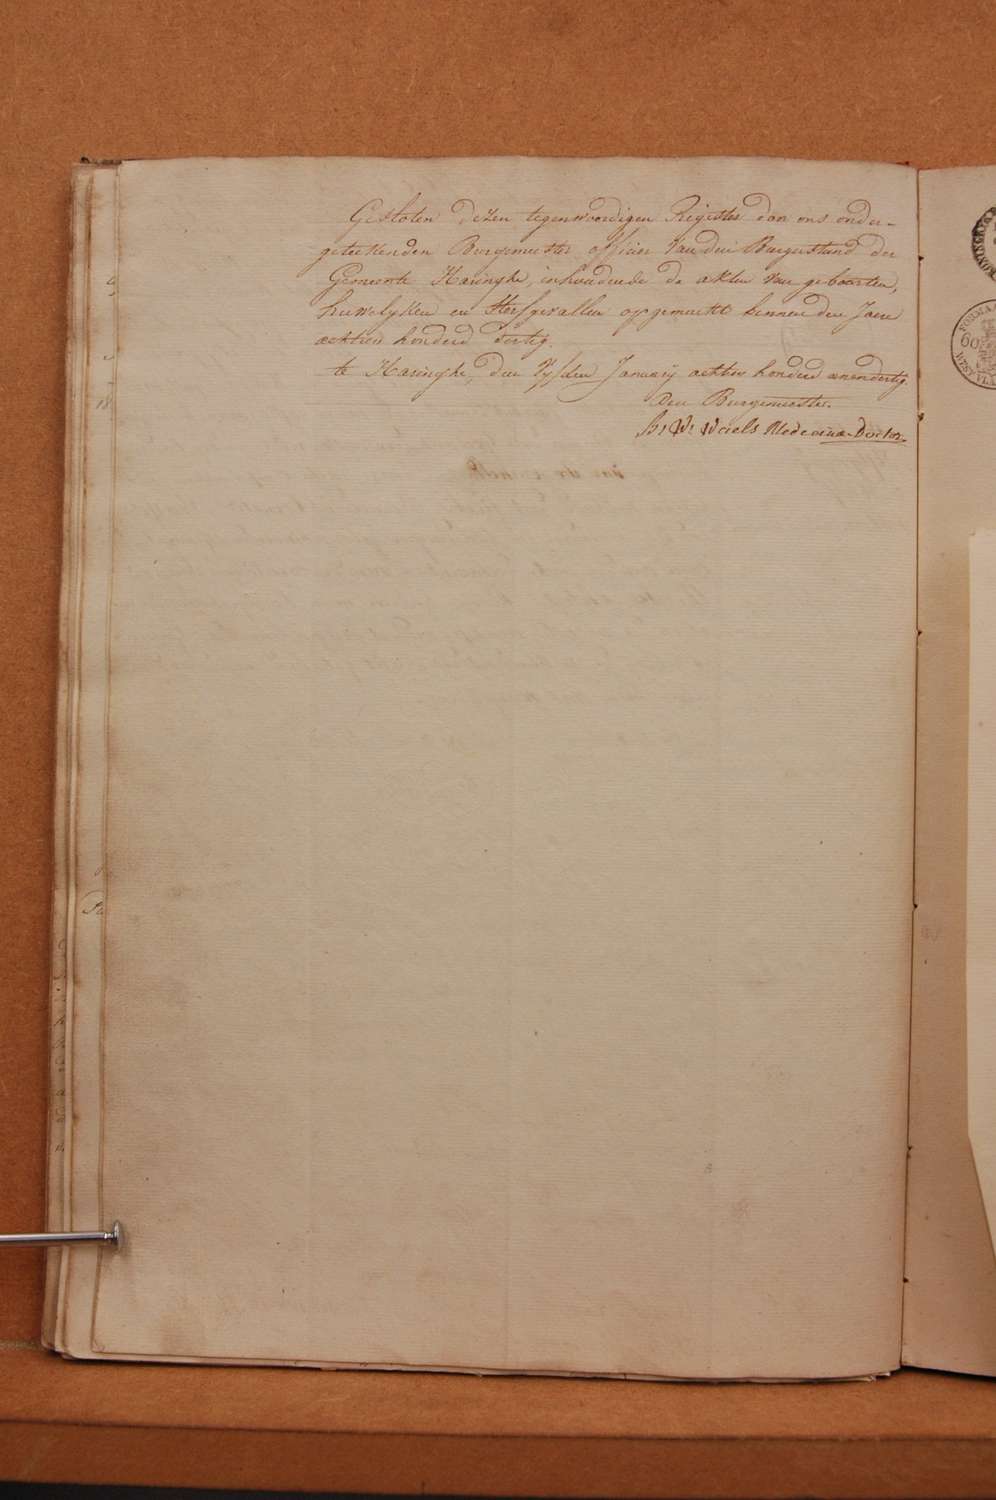 Gesloten dezen tegenwoordigen Register door ons onder-
geteekenden Burgemeester officier van den Burgerstand der
Gemeente Haringhe, inhoudende de akten van geboorten,
huwelyken en Sterfgevallen opgemaekt binnen den Jaere
achtien honderd dertig.
te Haringhe, den January achtien honderd eenendertig.
Den Burgemeester.
Waels Medecinae Doctor.
18
60